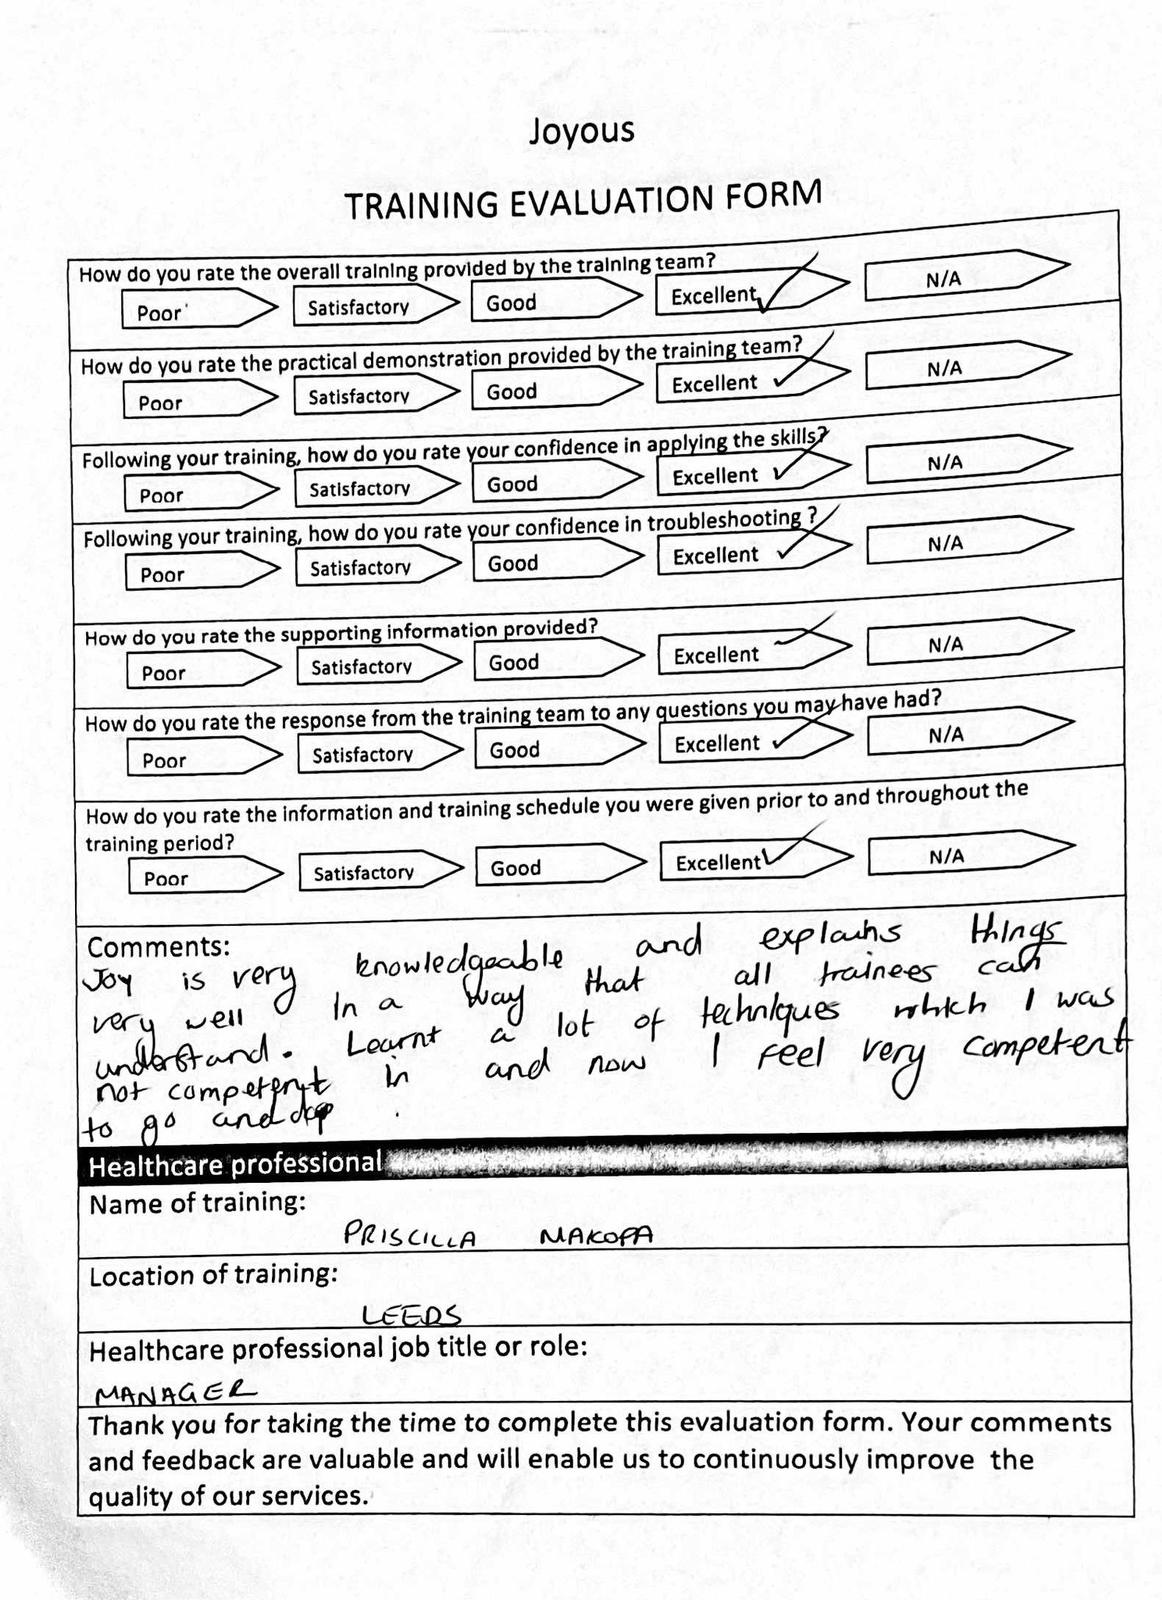 Joyous
TRAINING EVALUATION FORM
How do you rate the overall training provided by the training team?
Poor Satisfactory Good Excellent N/A
How do you rate the practical demonstration provided by the training team?
Poor Satisfactory Good Excellent N/A
Following your training, how do you rate your confidence in applying the skills?
Poor Satisfactory Good Excellent N/A
Following your training, how do you rate your confidence in troubleshooting ?
Poor Satisfactory Good Excellent N/A
How do you rate the supporting information provided?
Poor Satisfactory Good Excellent N/A
How do you rate the response from the training team to any questions you may have had?
Poor Satisfactory Good Excellent N/A
How do you rate the information and training schedule you were given prior to and throughout the
training period?
Poor Satisfactory Good Excellent N/A
Comments:
Joy is very knowledgeable and explains things
very well in a way that all trainees can
understand. Learnt a lot of techniques which I was
not competent in and now I feel very competent
to go and
Healthcare professional
Name of training:
PRISCILLA MAKOPA
Location of training:
LEEDS
Healthcare professional job title or role:
MANAGER
Thank you for taking the time to complete this evaluation form. Your comments
and feedback are valuable and will enable us to continuously improve the
quality of our services.